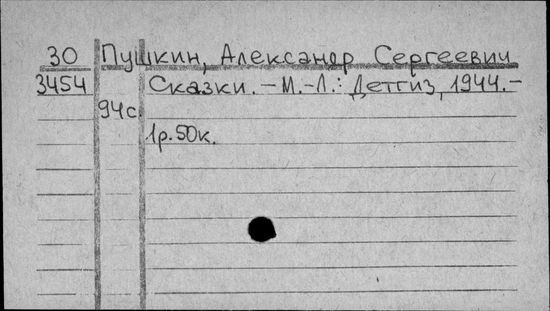 30 Пушкин, Александр Сергеевич
3454 Сказки. – М.-Л.: Детгиз, 1944. –
94с.
1р.50к.